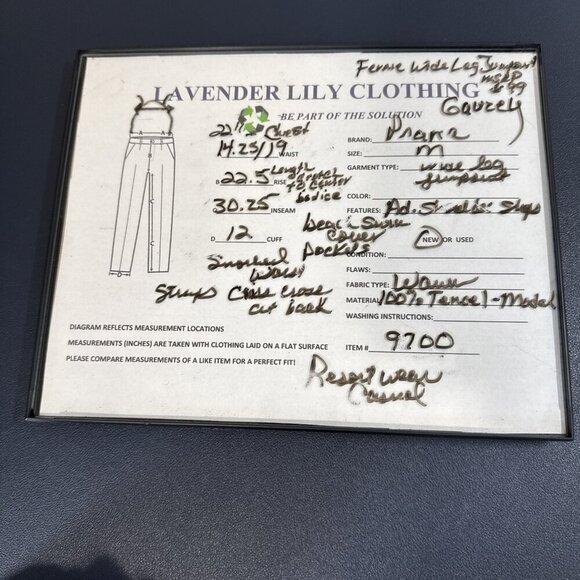 Fernie Wide Leg Jumpsuit
MSRP
$99
LAVENDER LILY CLOTHING
Gauzey
BE PART OF THE SOLUTION
22" Chest
14.25/19 WAIST
B 22.5 RISE Length crotch to center bodice
30.25 INSEAM
D 12 CUFF
beach swim cover
pockets
Smocked Waist
Straps Criss Cross at back
BRAND: Prana
SIZE: M
GARMENT TYPE: wide leg Jumpsuit
COLOR:
FEATURES: Ad. Shoulder Straps
NEW OR USED
CONDITION:
FLAWS:
FABRIC TYPE: Woven
MATERIAL 100% Tencel-Modal
WASHING INSTRUCTIONS:
ITEM # 9700
DIAGRAM REFLECTS MEASUREMENT LOCATIONS
MEASUREMENTS (INCHES) ARE TAKEN WITH CLOTHING LAID ON A FLAT SURFACE
PLEASE COMPARE MEASUREMENTS OF A LIKE ITEM FOR A PERFECT FIT!
Resort wear
Casual